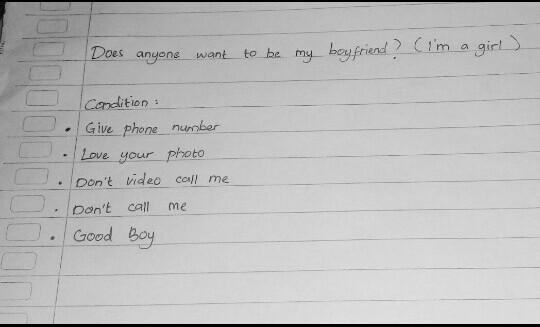 Does anyone want to be my boyfriend? (i'm a girl)
Condition :
• Give phone number
• Love your photo
• Don't video call me
• Don't call me
• Good Boy